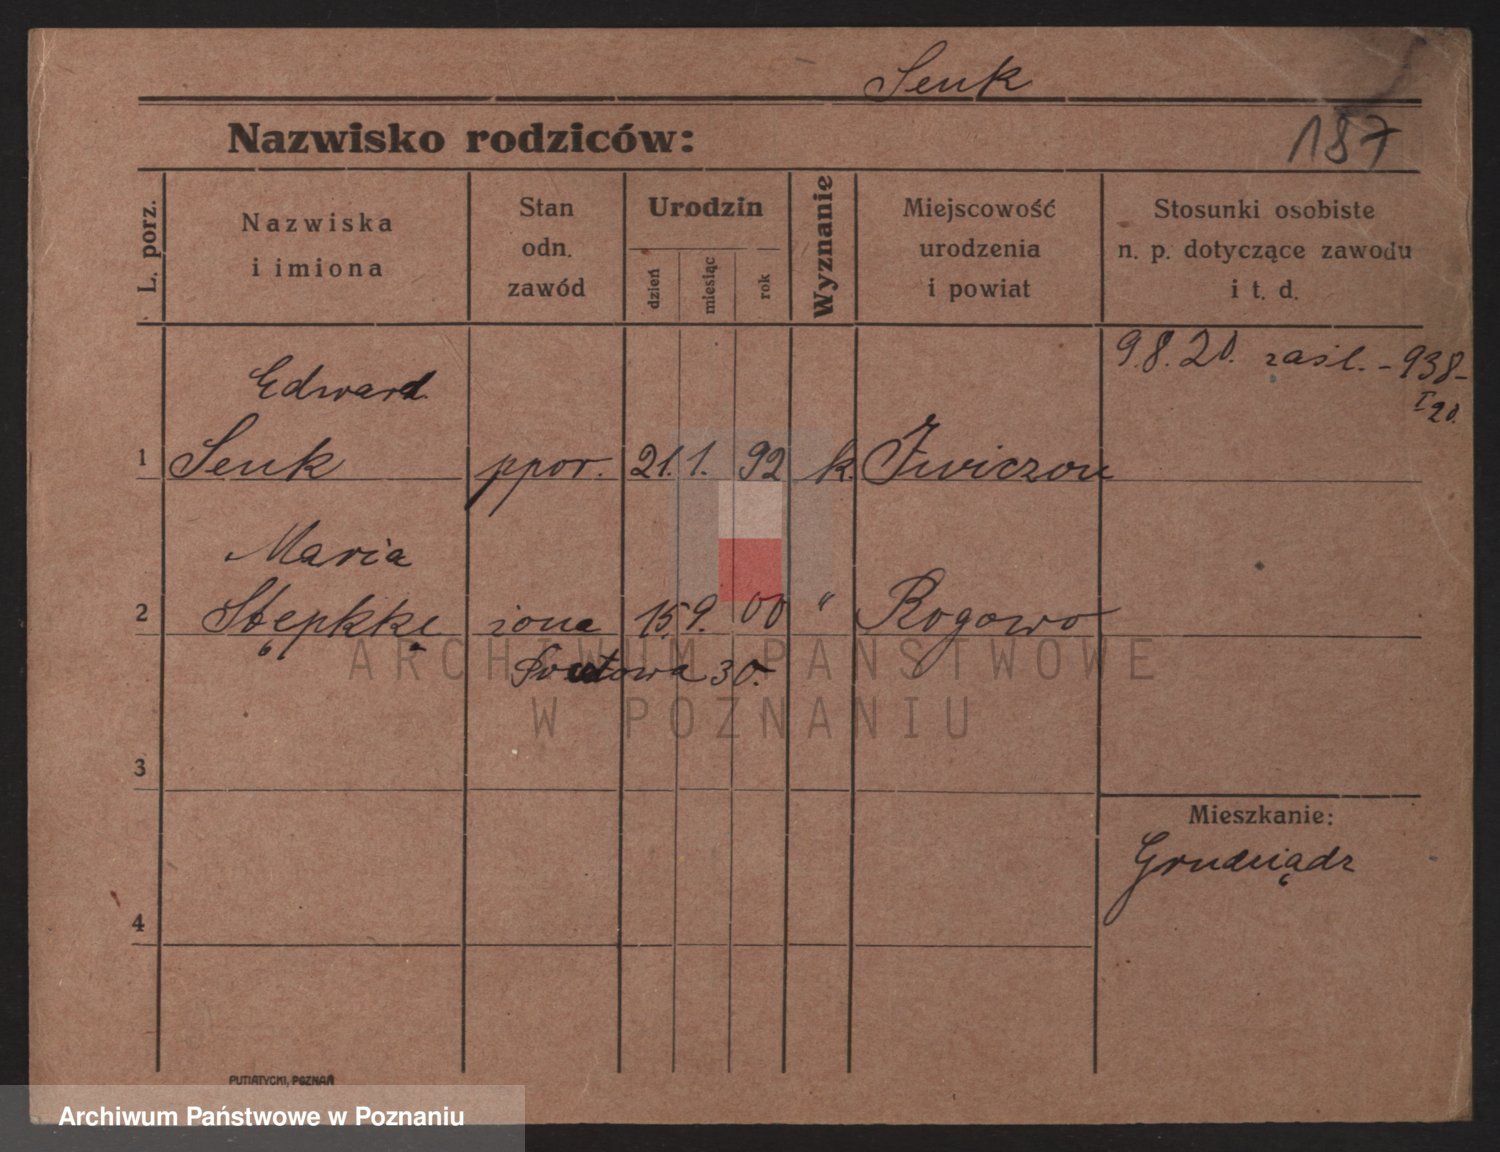 Senk
Nazwisko rodziców:
187
L. porz.
Nazwiska
i imiona
Stan
odn.
zawód
Urodzin
dzień
miesiąc
rok
Wyznanie
Miejscowość
urodzenia
i powiat
Stosunki osobiste
n. p. dotyczące zawodu
i t. d.
9.8.20. zaśl. - 938-
I 20.
Edward
1 Senk ppor. 21. 1. 92 k. Iwiczon
Maria
2 żona 15. 9. 00 " Rogowo
30.
3
Mieszkanie:
Grudziądz
4
PUTIATYCKI, POZNAŃ
ARCHIWUM PAŃSTWOWE
W POZNANIU
Archiwum Państwowe w Poznaniu